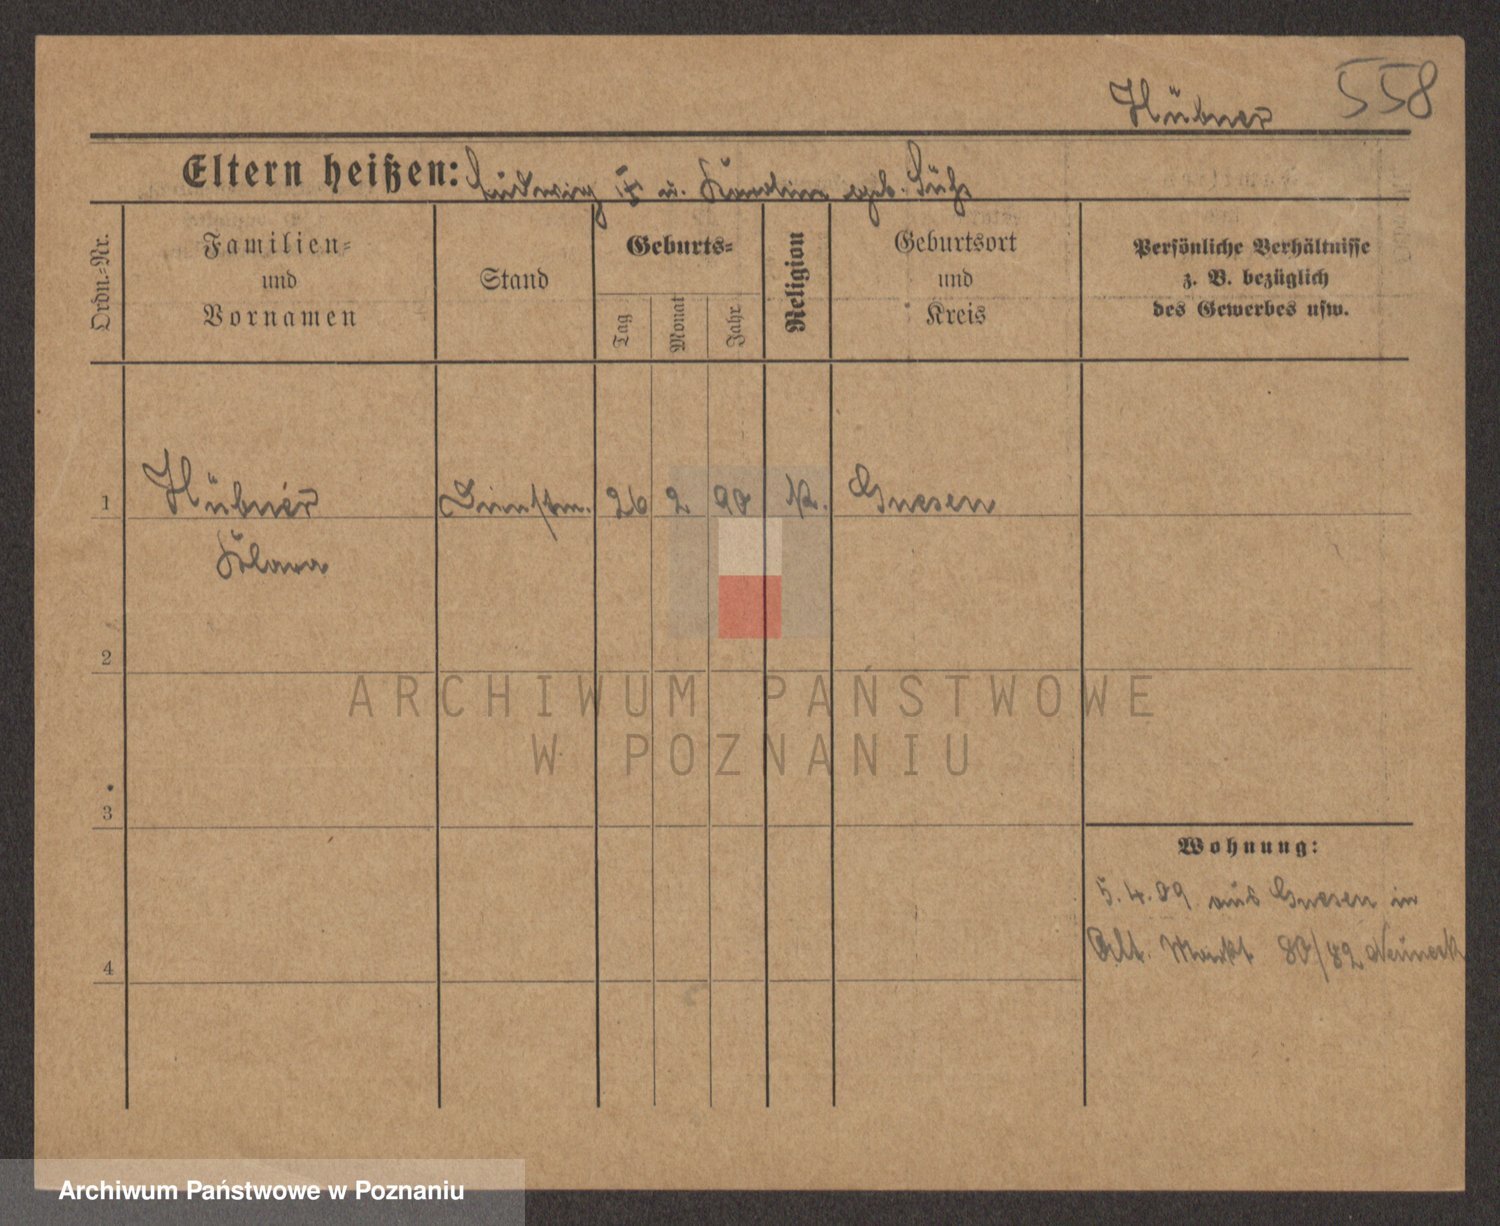 558
Hübner
Eltern heißen: Ludwig † u. Karoline geb.
Ordn.=Nr.
Familien=
und
Vornamen
Stand
Geburts=
Tag
Monat
Jahr
Religion
Geburtsort
und
Kreis
Persönliche Verhältnisse
z. B. bezüglich
des Gewerbes usw.
1 Hübner Dienstm. 26 2 90 k. Gnesen
Klara
2
3
4
Wohnung:
5.4.09 aus Gnesen in
Alt. Markt 80/82
ARCHIWUM PAŃSTWOWE
W POZNANIU
Archiwum Państwowe w Poznaniu